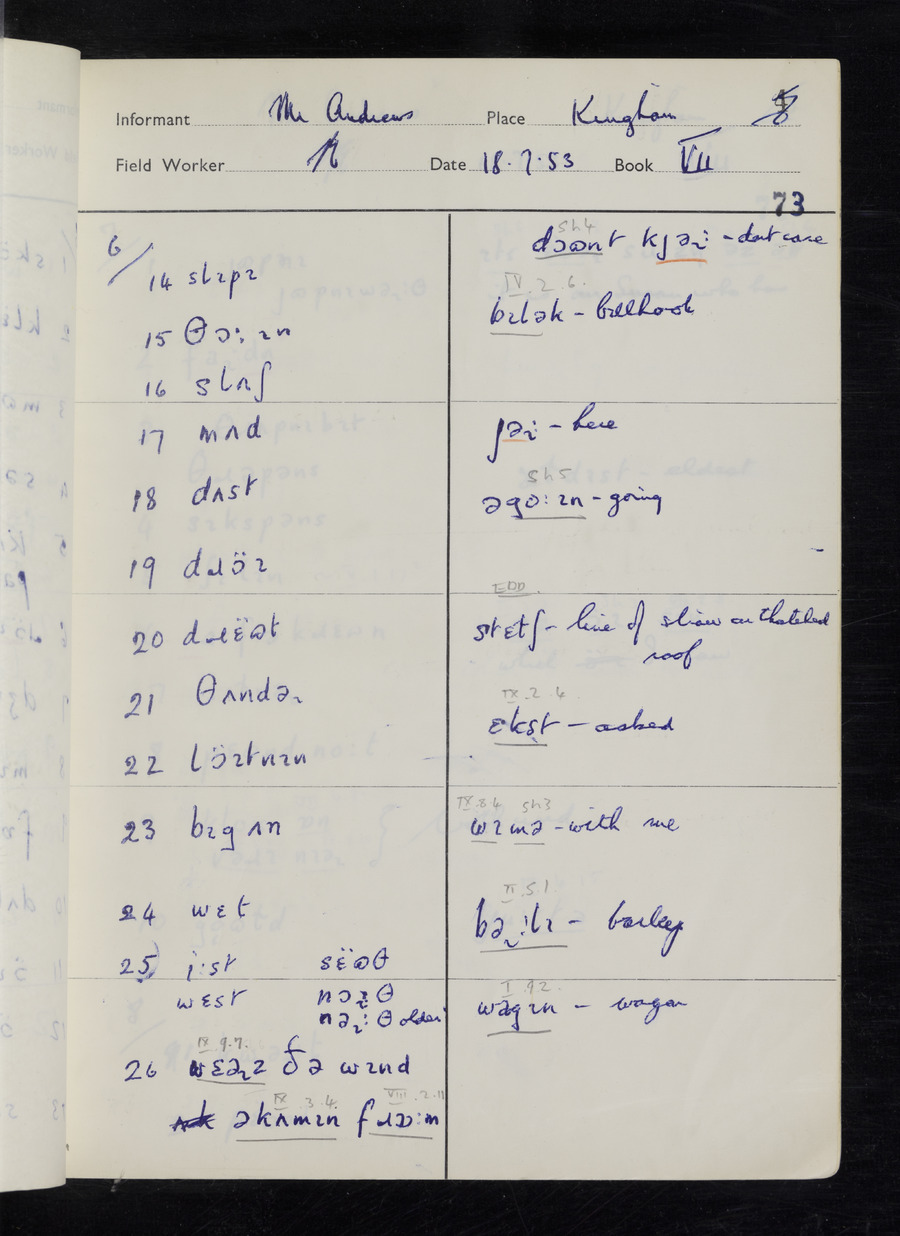 Informant Mr Andrews Place Kingham
Field Worker Date 18.7.53 Book VII
73
6/
14 slɪpɪ
15 θɔ:ɪn
16 slʌʃ
17 mʌd
18 dʌst
19 dɹöɪ
20 dɹɛ̈ʊt
21 θʌndəɹ
22 löɪtnɪn
23 bɪgʌn
24 wɛt
25 i:st sɛ̈ʊθ
wɛst nɔɹθ
nəɹ:θ older
IX.9.7.
26 wɛəɹz ðə wɪnd
IX.3.4. VIII.2.11
əkʌmɪn fɹɒ:m
Sh4
dɔʊnt kjəɹ: - dont care
IV.2.6.
bɪlək - billhook
jəɹ: - here
Sh5
əgo:ɪn - going
EDD.
stɛtʃ - line of straw on thatched
roof
IX.2.4.
ɛkst - asked
IX.8.4 Sh3
wɪ mə - with me
II.5.1.
bəɹ:lɪ - barley
I.9.2.
wəgɪn - wagon